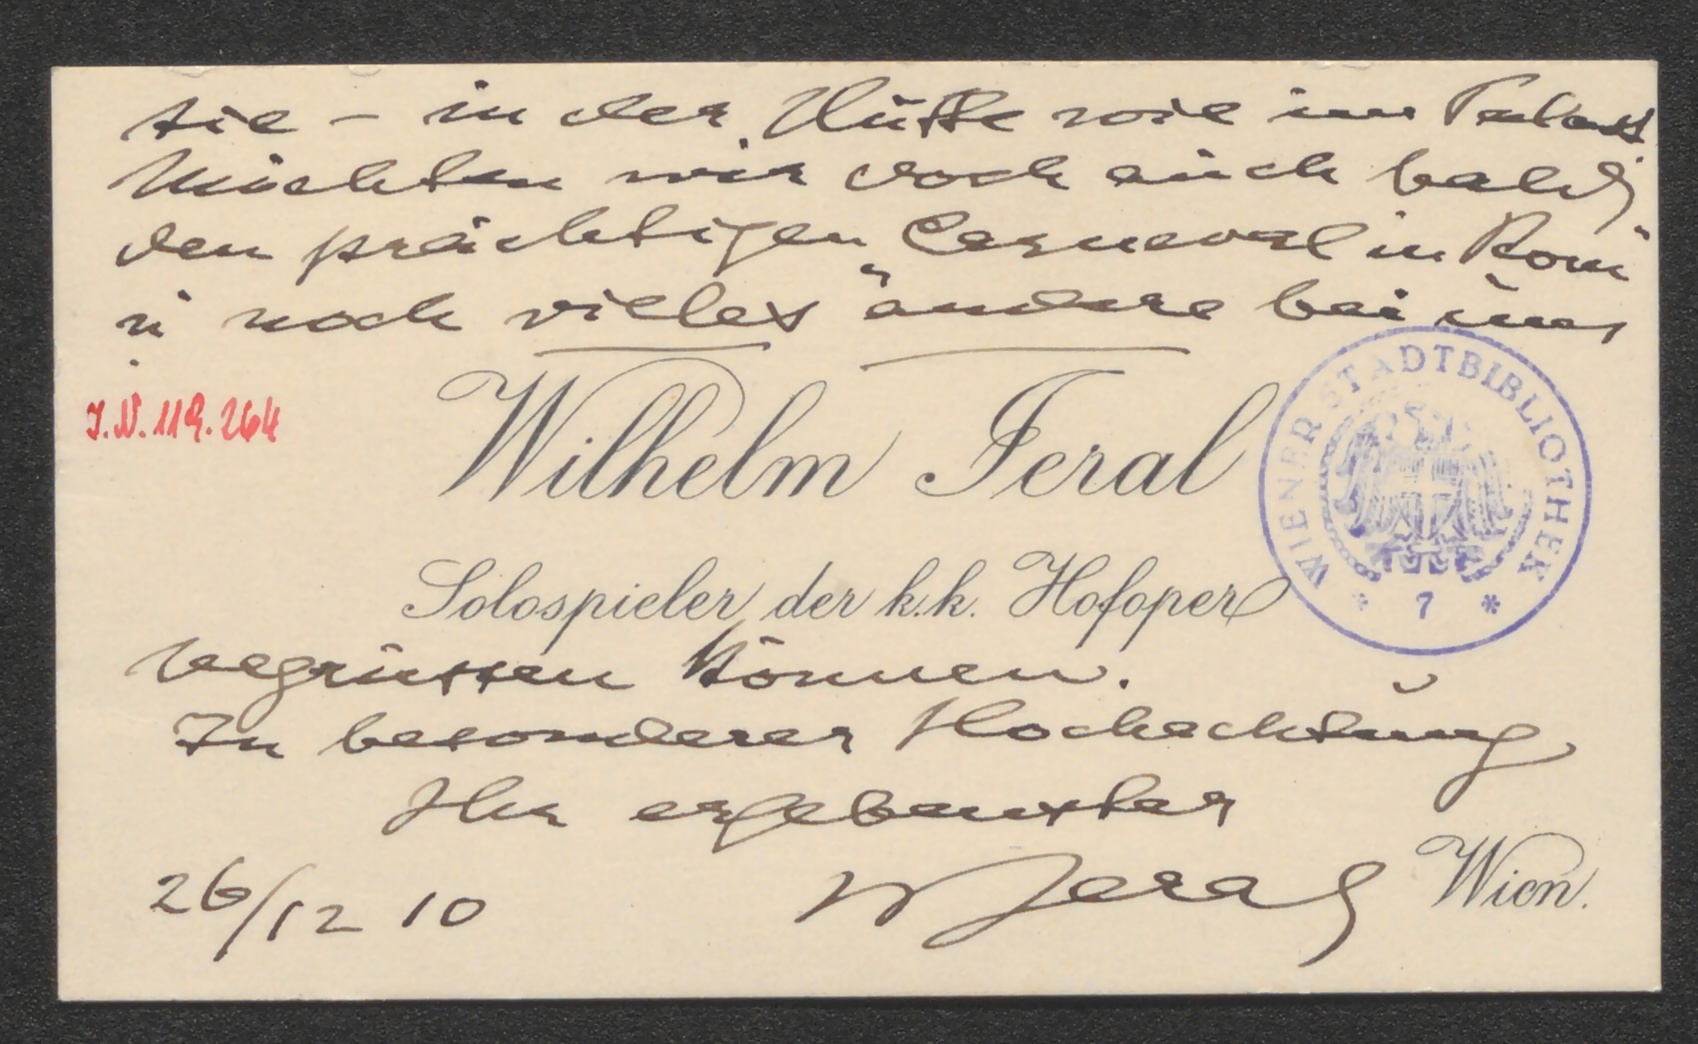 sie – in der Hütte wie im Palast
Möchten wir doch auch bald
den prächtigen „Carneval in Rom"
u noch vielles andere bei uns
I.N. 119.264
Wilhelm Feral
WIENER STADTBIBLIOTHEK
* 7 *
Solospieler der k.k. Hofoper
begrüssen können.
In besonderer Hochachtung
Ihr ergebenster
26/12 10 W Feral
Wien.